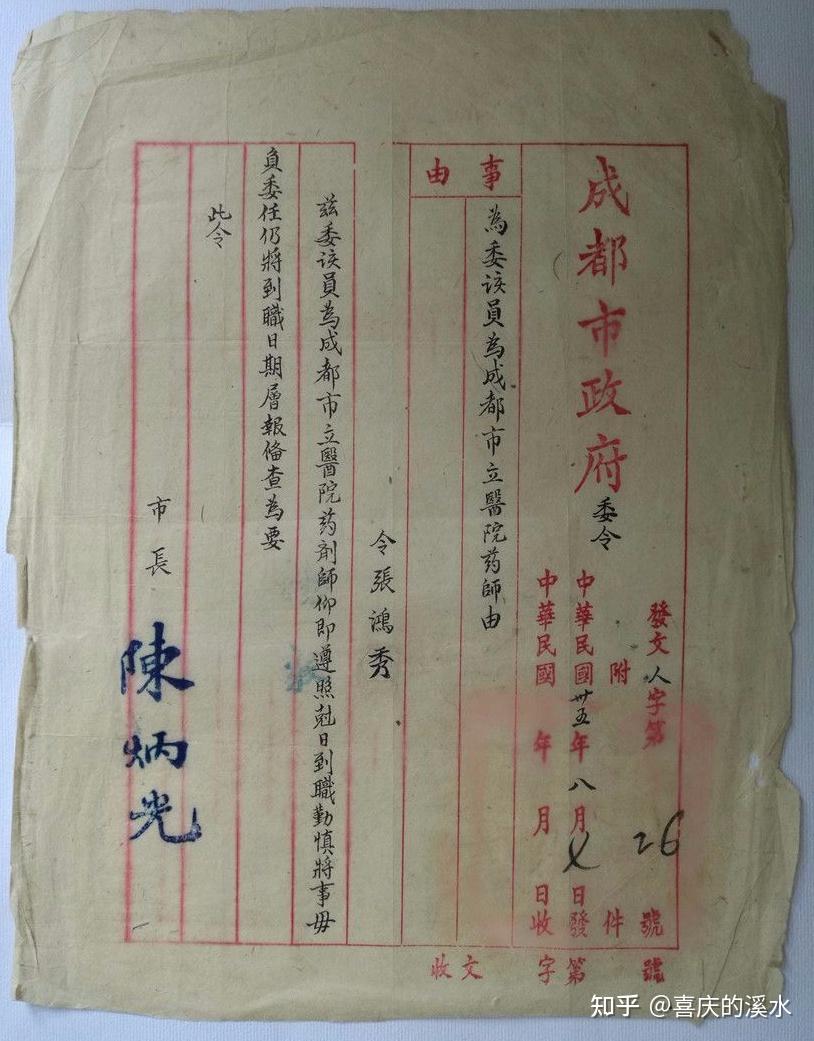 成都市政府委令
發文人字第26號
附件
中華民國卅五年八月 日發
中華民國 年 月 日收
收文 字第 號
事由
為委该員為成都市立醫院药師由
令張鴻秀
兹委该員為成都市立醫院药剤師仰即遵照尅日到職勤慎將事毋
負委任仍將到職日期層報俻查為要
此令
市長
陳炳光
知乎 @喜庆的溪水